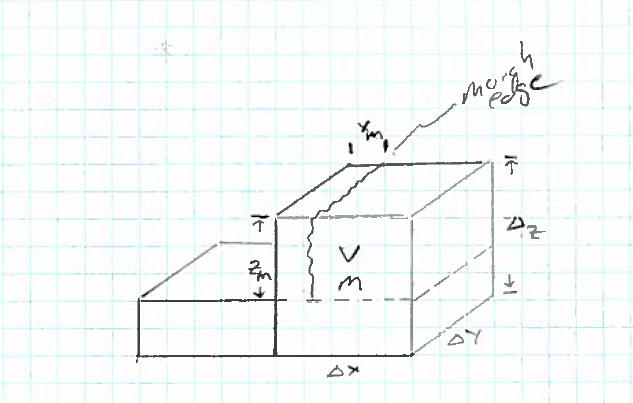 marsh
edge
xm
zm
V
m
Δz
ΔY
Δx